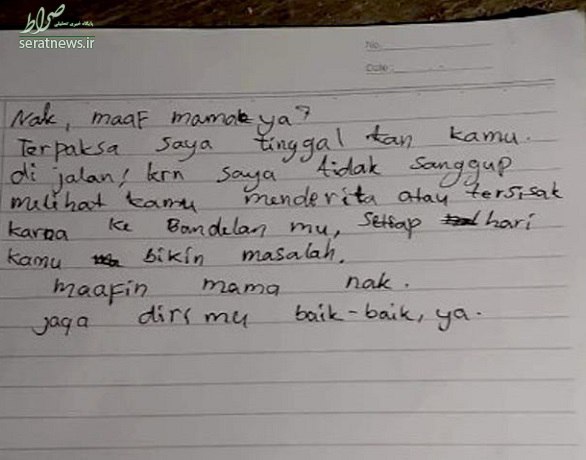 صراط
پایگاه خبری تحلیلی
seratnews.ir
No.
Date:
Nak, maaf mamak ya?
Terpaksa saya tinggal kan kamu.
di jalan! krn saya tidak sanggup
melihat kamu menderita atau tersisak
karna ke Bandelan mu, setiap hari
kamu bikin masalah.
maafin mama nak.
jaga diri mu baik-baik, ya.